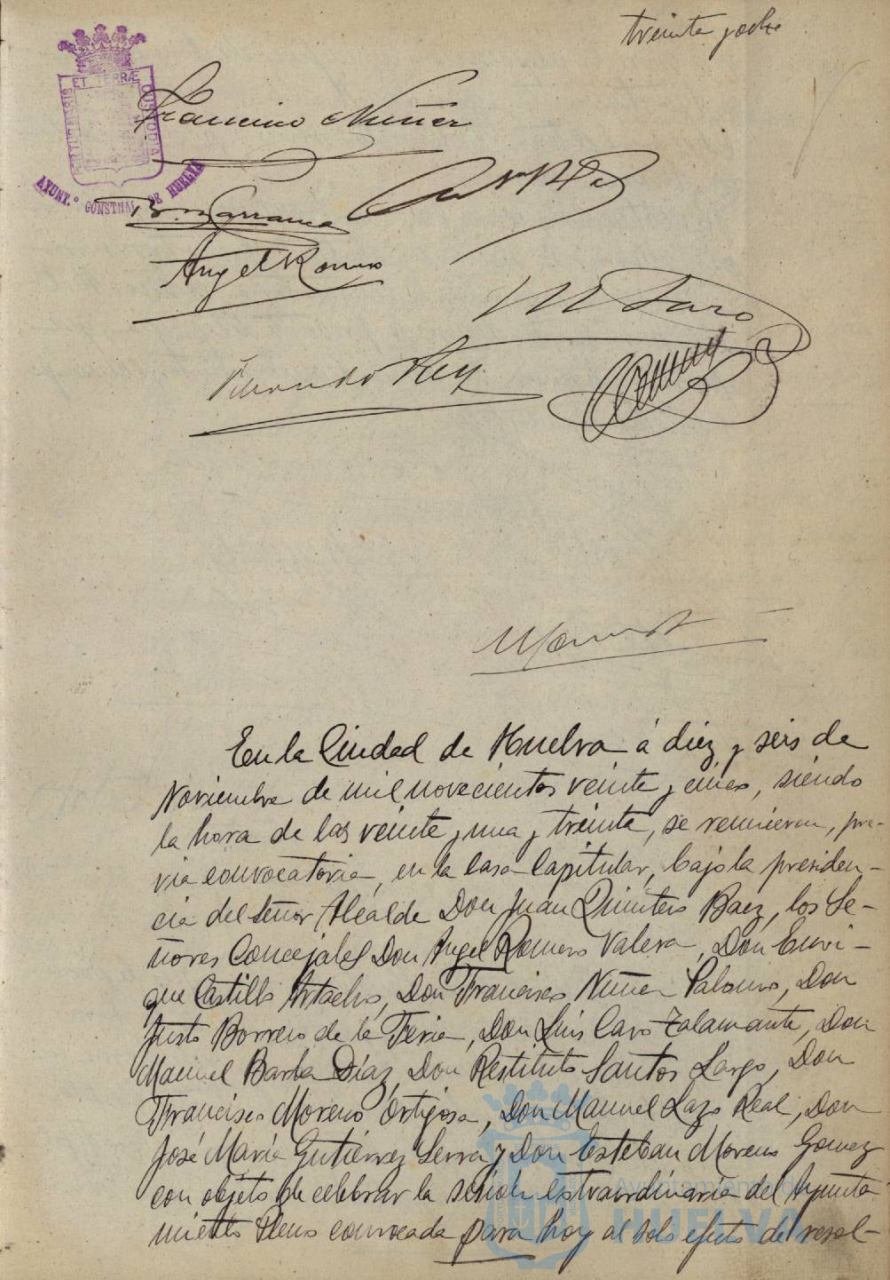 treinta y ocho
ET TERRÆ
PORTUS MARIS
CUSTODIA
AYUNT.º CONSTNAL DE HUELVA
Francisco Nuñez
Angel Romero
M Lazo
En la Ciudad de Huelva á diez y seis de
Noviembre de mil novecientos veinte y cinco, siendo
la hora de las veinte y una y treinta, se reunieron, pre-
via convocatoria, en la Casa Capitular, bajo la presiden-
cia del Señor Alcalde Don Juan Quintero Baez, los Se-
ñores Concejales Don Angel Romero Valera, Don Enri-
que Castillo Artacho, Don Francisco Nuñez Palomo, Don
Justo Borrero de la Feria, Don Luís Cavo Zalamante, Don
Manuel Barba Díaz, Don Restituto Santos Largo, Don
Francisco Moreno Ortigosa, Don Manuel Lazo Real, Don
José María Gutiérrez Serra y Don Esteban Moreno Gomez
con objeto de celebrar la sesión extraordinaria del Ayunta
miento Pleno convocada para hoy al solo efecto de resol-
Ayuntamiento de
HUELVA